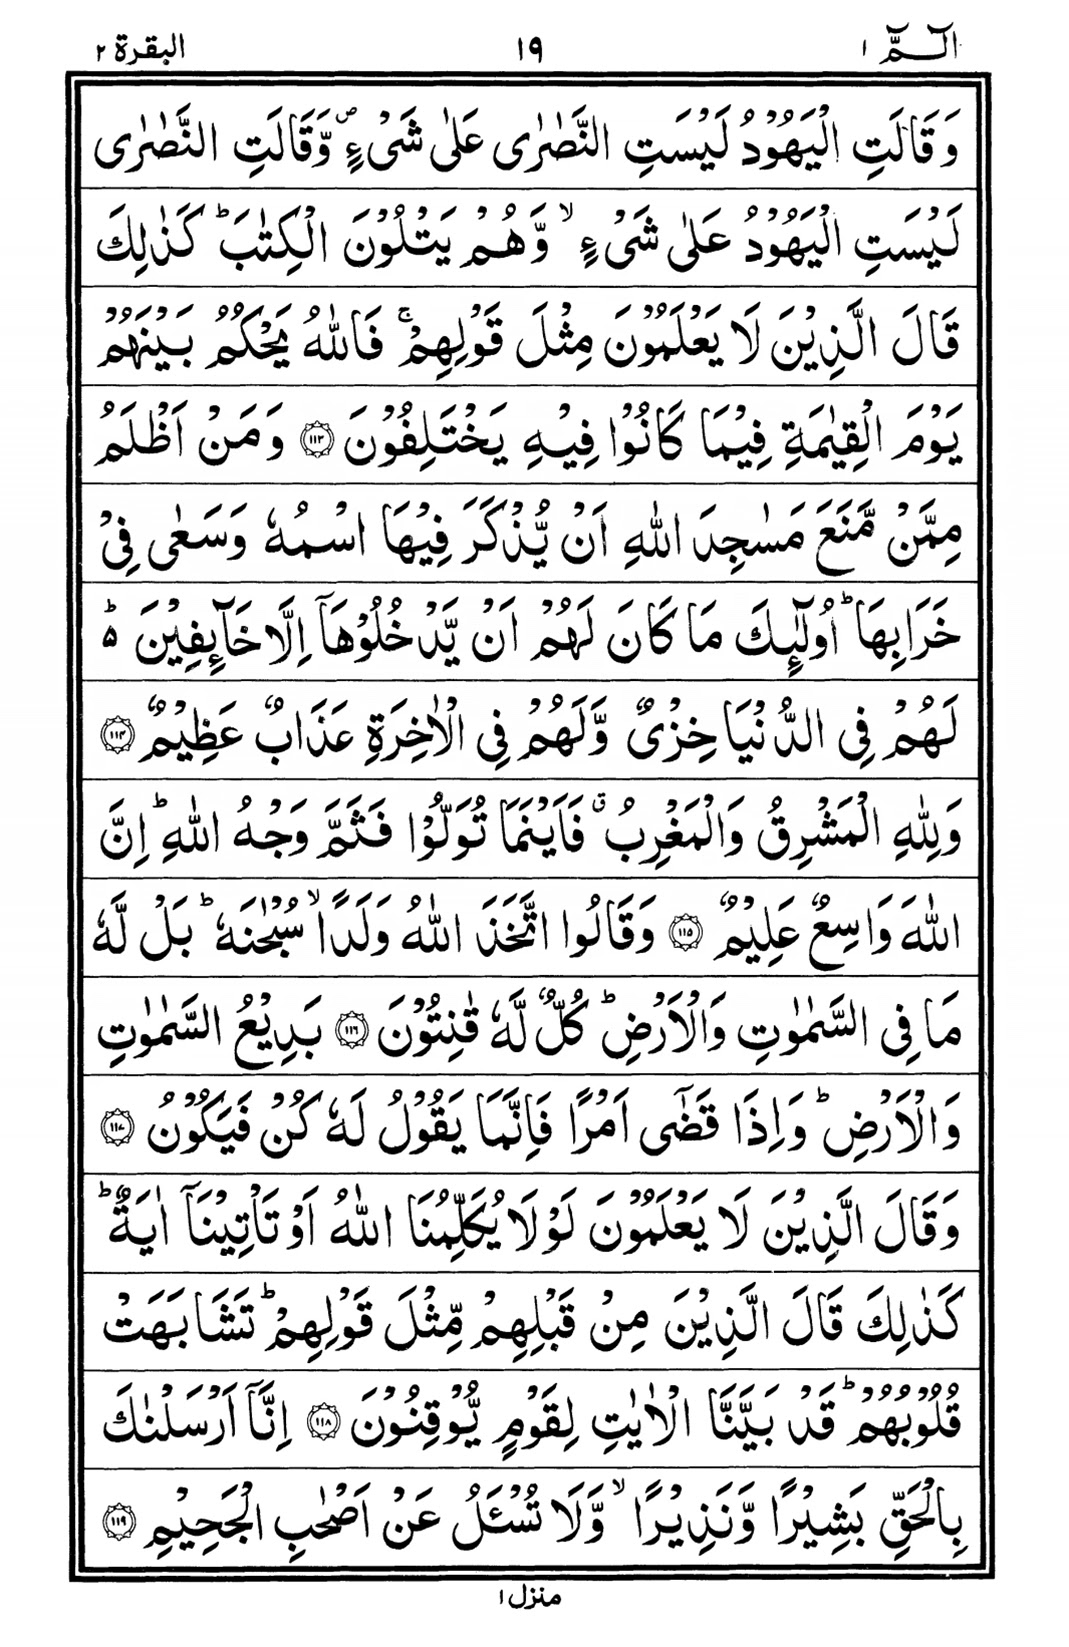 الٓـمّٓ ١ ١٩ البقرة ٢
وَقَالَتِ الْيَهُوْدُ لَيْسَتِ النَّصٰرٰى عَلٰى شَیْءٍ ۪ وَّقَالَتِ النَّصٰرٰى
لَيْسَتِ الْيَهُوْدُ عَلٰى شَیْءٍ ۙ وَّهُمْ يَتْلُوْنَ الْكِتٰبَ ؕ كَذٰلِكَ
قَالَ الَّذِيْنَ لَا يَعْلَمُوْنَ مِثْلَ قَوْلِهِمْ ۚ فَاللّٰهُ يَحْكُمُ بَيْنَهُمْ
يَوْمَ الْقِيٰمَةِ فِيْمَا كَانُوْا فِيْهِ يَخْتَلِفُوْنَ ﴿۱۱۳﴾ وَمَنْ اَظْلَمُ
مِمَّنْ مَّنَعَ مَسٰجِدَ اللّٰهِ اَنْ يُّذْكَرَ فِيْهَا اسْمُهٗ وَسَعٰى فِیْ
خَرَابِهَا ؕ اُولٰٓئِكَ مَا كَانَ لَهُمْ اَنْ يَّدْخُلُوْهَاۤ اِلَّا خَآئِفِيْنَ ۵ؕ
لَهُمْ فِی الدُّنْيَا خِزْیٌ وَّلَهُمْ فِی الْاٰخِرَةِ عَذَابٌ عَظِيْمٌ ﴿۱۱۴﴾
وَلِلّٰهِ الْمَشْرِقُ وَالْمَغْرِبُ ۗ فَاَيْنَمَا تُوَلُّوْا فَثَمَّ وَجْهُ اللّٰهِ ؕ اِنَّ
اللّٰهَ وَاسِعٌ عَلِيْمٌ ﴿۱۱۵﴾ وَقَالُوا اتَّخَذَ اللّٰهُ وَلَدًا ۙ سُبْحٰنَهٗ ؕ بَلْ لَّهٗ
مَا فِی السَّمٰوٰتِ وَالْاَرْضِ ؕ كُلٌّ لَّهٗ قٰنِتُوْنَ ﴿۱۱۶﴾ بَدِيْعُ السَّمٰوٰتِ
وَالْاَرْضِ ؕ وَاِذَا قَضٰۤى اَمْرًا فَاِنَّمَا يَقُوْلُ لَهٗ كُنْ فَيَكُوْنُ ﴿۱۱۷﴾
وَقَالَ الَّذِيْنَ لَا يَعْلَمُوْنَ لَوْلَا يُكَلِّمُنَا اللّٰهُ اَوْ تَاْتِيْنَاۤ اٰيَةٌ ؕ
كَذٰلِكَ قَالَ الَّذِيْنَ مِنْ قَبْلِهِمْ مِّثْلَ قَوْلِهِمْ ؕ تَشَابَهَتْ
قُلُوْبُهُمْ ؕ قَدْ بَيَّنَّا الْاٰيٰتِ لِقَوْمٍ يُّوْقِنُوْنَ ﴿۱۱۸﴾ اِنَّاۤ اَرْسَلْنٰكَ
بِالْحَقِّ بَشِيْرًا وَّنَذِيْرًا ۙ وَّلَا تُسْئَلُ عَنْ اَصْحٰبِ الْجَحِيْمِ ﴿۱۱۹﴾
منزل ١